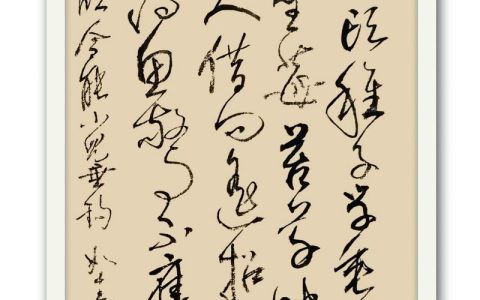 頭稚子學垂
坐莓苔草映
人借問遙招
得魚驚不應
胡令能小兒垂釣